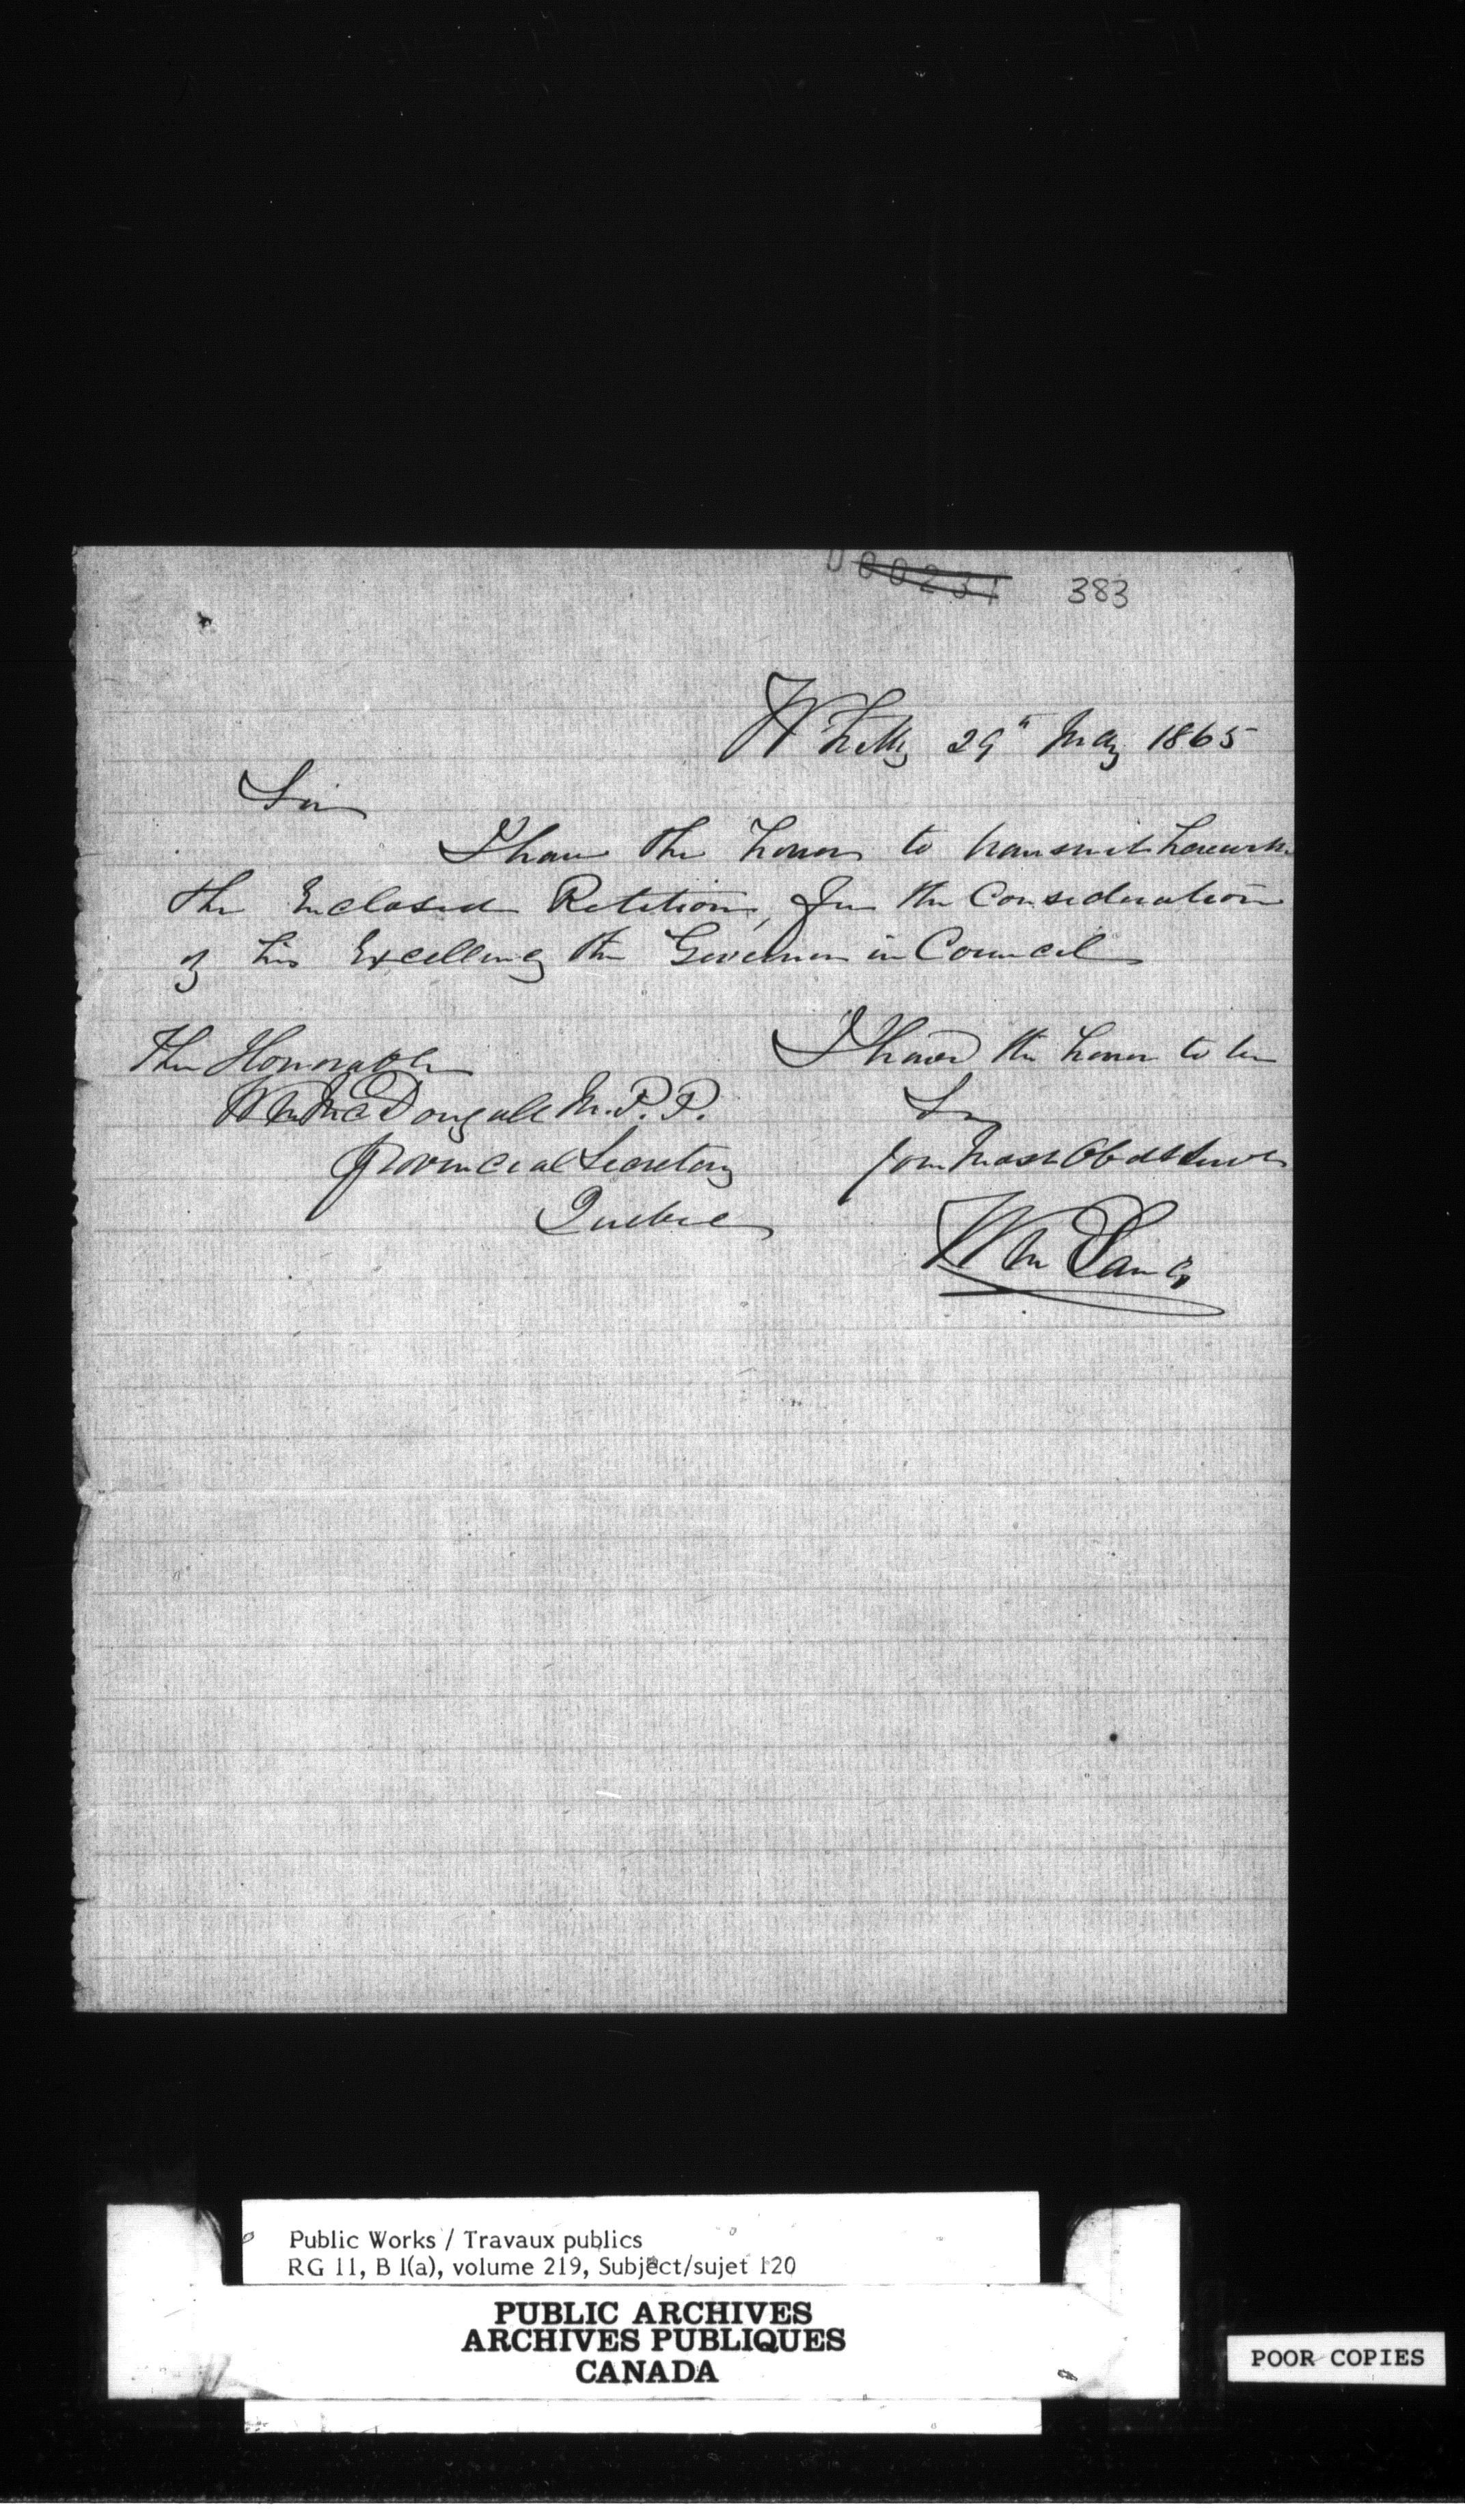 000231 383
Whitby 29th May 1865
Sir
I have the honor to transmit herewith
the Enclosed Petition, for the Consideration
of his Excellency the Governor in Council
I have the honor to be
Sir
Your Most Obdt Servt
Wm
The Honorable
Wm McDougall M.P.P.
Provincial Secretary
Quebec
Public Works / Travaux publics
RG 11, B 1(a), volume 219, Subject/sujet 120
PUBLIC ARCHIVES
ARCHIVES PUBLIQUES
CANADA
POOR COPIES